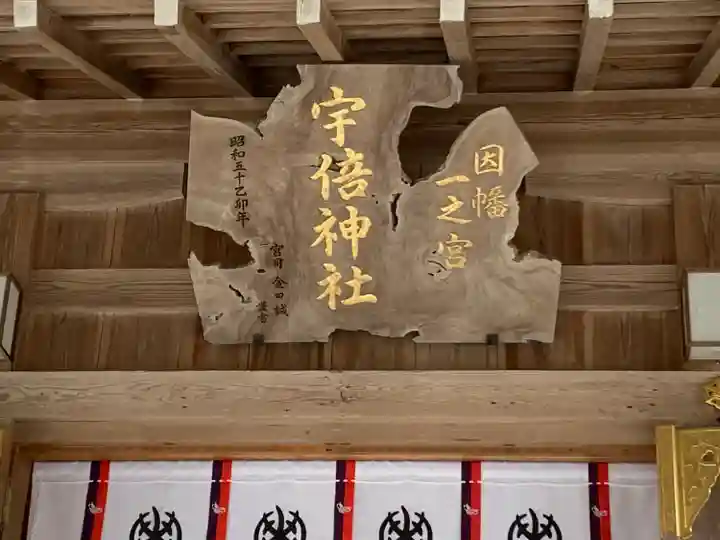 因幡
一之宮
宇倍神社
昭和五十乙卯年
宮司 金田誠
謹書